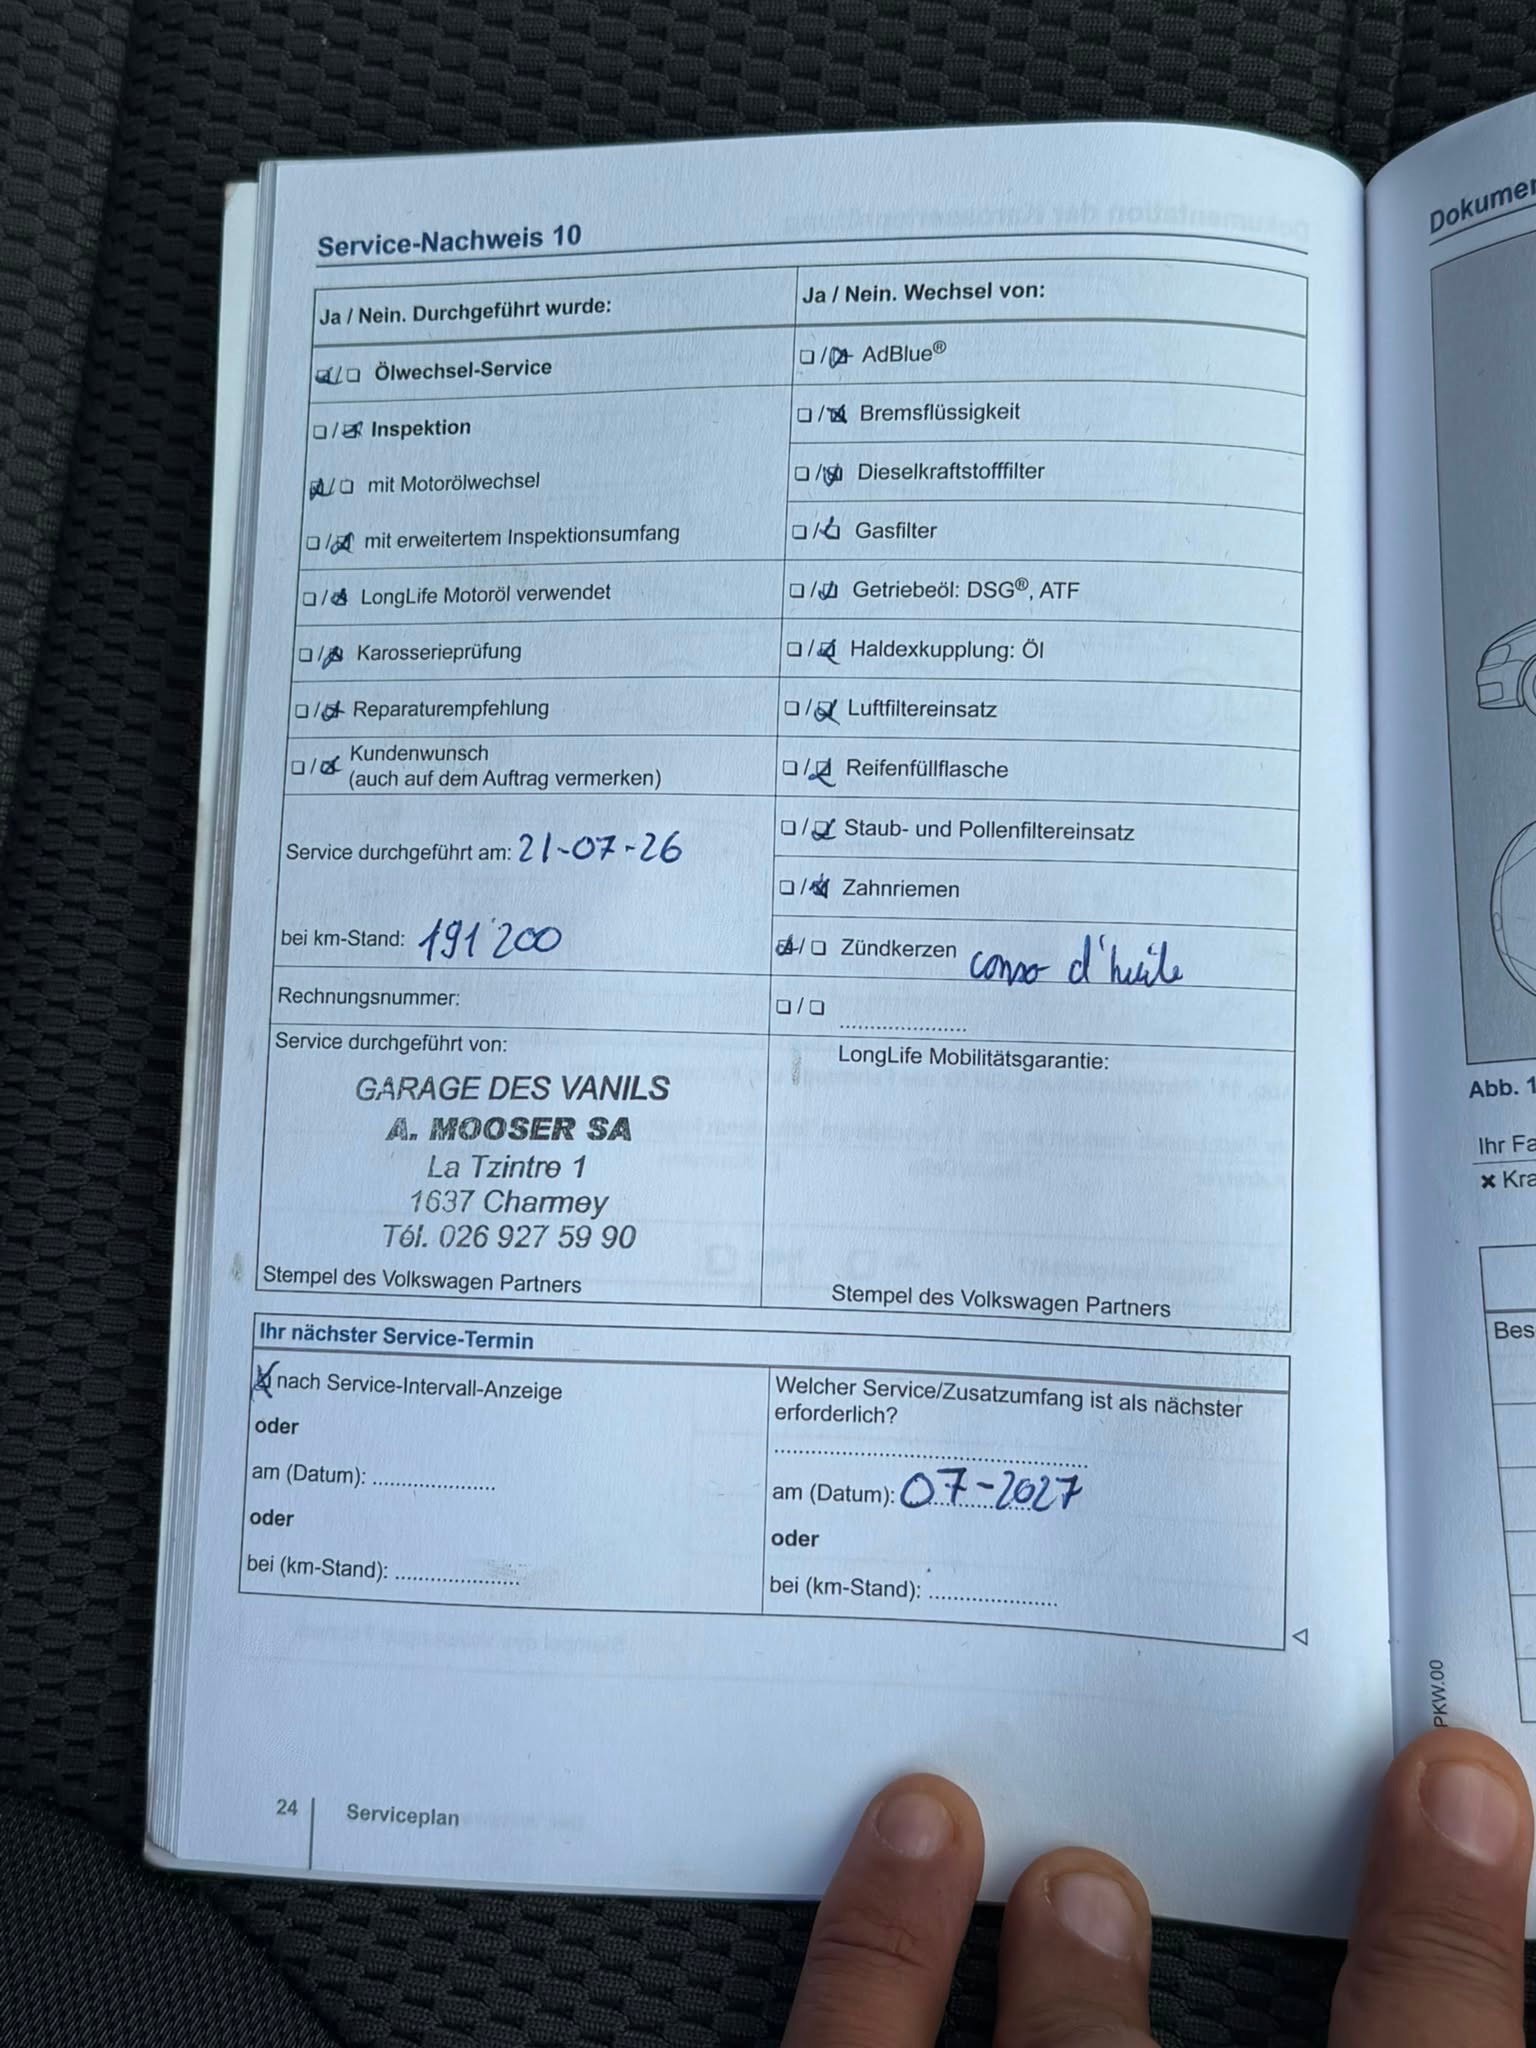 Service-Nachweis 10
Ja / Nein. Durchgeführt wurde:
☑/☐ Ölwechsel-Service
☐/☑ Inspektion
☑/☐ mit Motorölwechsel
☐/☑ mit erweitertem Inspektionsumfang
☐/☑ LongLife Motoröl verwendet
☐/☑ Karosserieprüfung
☐/☑ Reparaturempfehlung
☐/☑ Kundenwunsch
(auch auf dem Auftrag vermerken)
Service durchgeführt am: 21-07-26
bei km-Stand: 191'200
Rechnungsnummer:
Service durchgeführt von:
GARAGE DES VANILS
A. MOOSER SA
La Tzintre 1
1637 Charmey
Tél. 026 927 59 90
Stempel des Volkswagen Partners
Ja / Nein. Wechsel von:
☐/☑ AdBlue®
☐/☑ Bremsflüssigkeit
☐/☑ Dieselkraftstofffilter
☐/☑ Gasfilter
☐/☑ Getriebeöl: DSG®, ATF
☐/☑ Haldexkupplung: Öl
☐/☑ Luftfiltereinsatz
☐/☑ Reifenfüllflasche
☐/☑ Staub- und Pollenfiltereinsatz
☐/☑ Zahnriemen
☑/☐ Zündkerzen conso d'huile
☐/☐ ......................
LongLife Mobilitätsgarantie:
Stempel des Volkswagen Partners
Ihr nächster Service-Termin
☒ nach Service-Intervall-Anzeige
oder
am (Datum): ......................
oder
bei (km-Stand): ......................
Welcher Service/Zusatzumfang ist als nächster
erforderlich?
......................
am (Datum): 07-2027
oder
bei (km-Stand): ......................
24
Serviceplan
Abb. 1
PKW.00